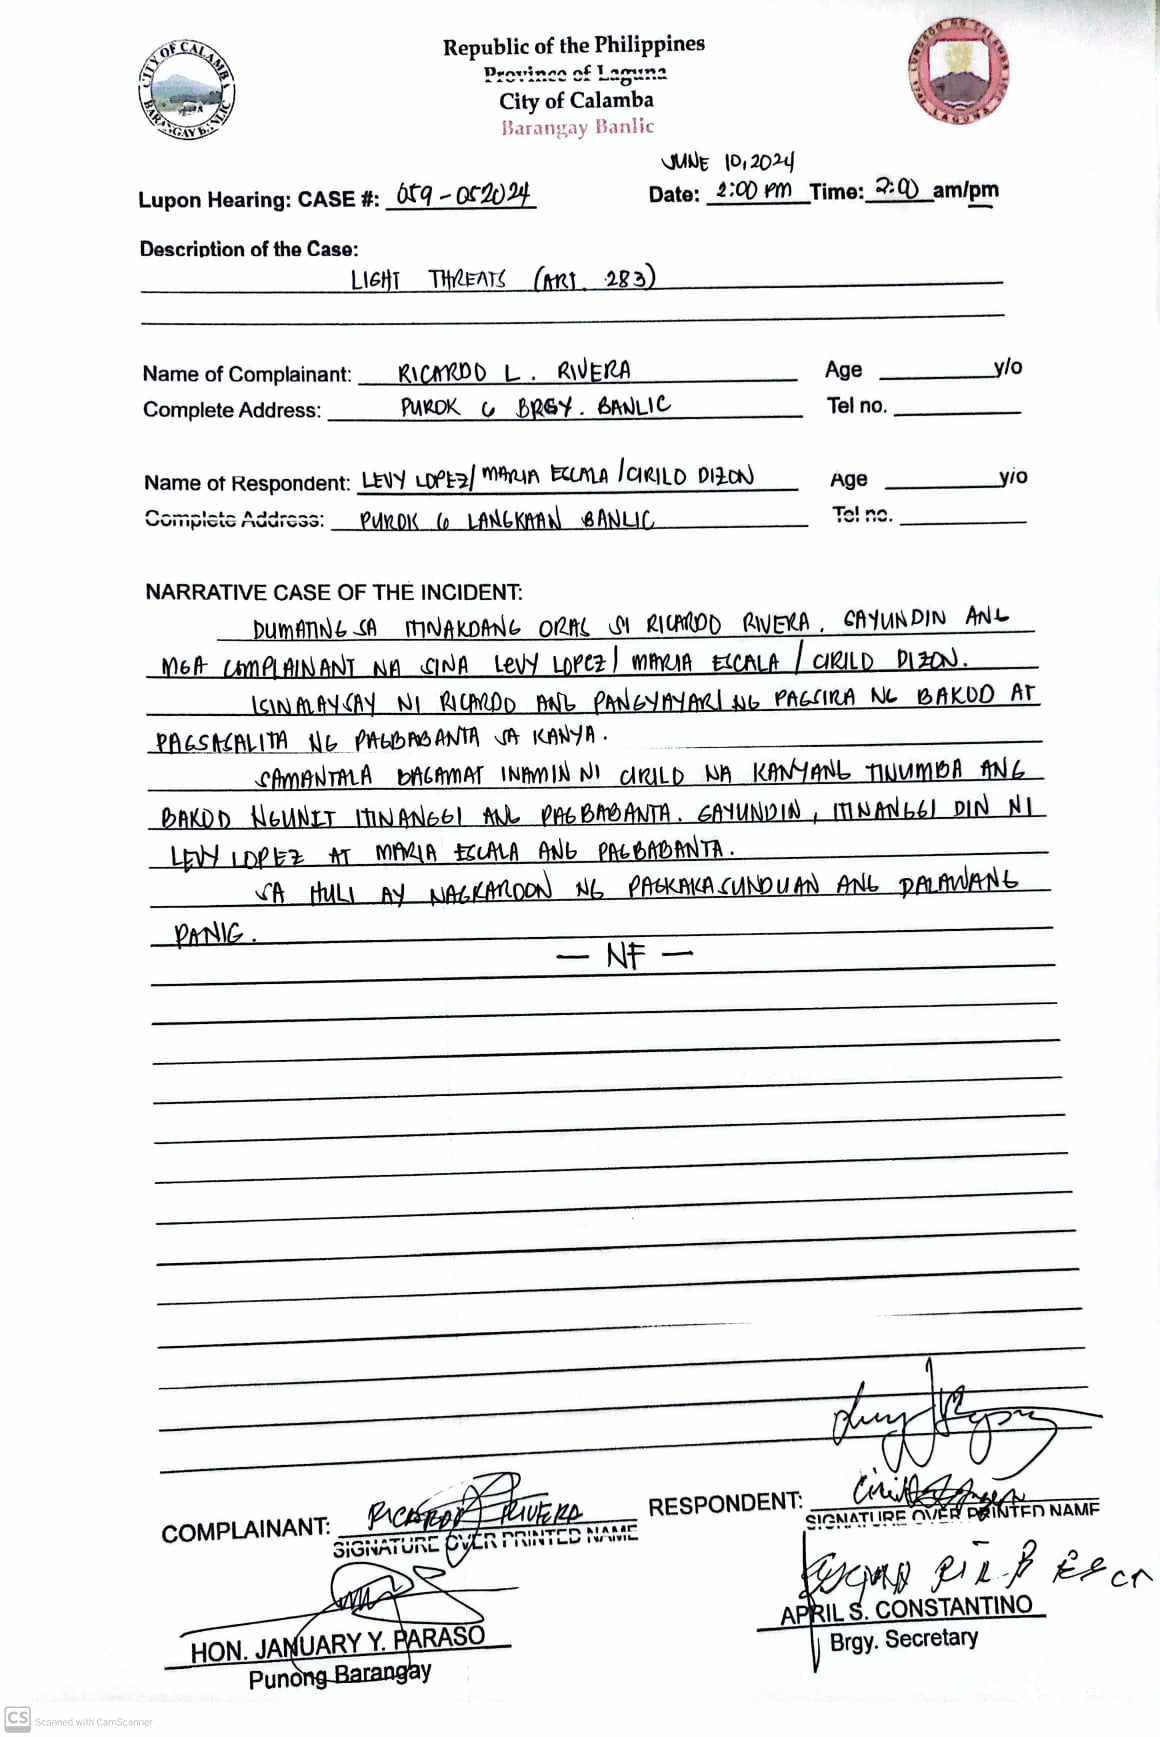 CITY OF CALAMBA
BARANGAY BANLIC
Republic of the Philippines
Province of Laguna
City of Calamba
Barangay Banlic
LUNGSOD NG CALAMBA
LAGUNA
JUNE 10, 2024
Lupon Hearing: CASE #: 059-052024 Date: 2:00 PM Time: 2:00 am/pm
Description of the Case:
LIGHT THREATS (ART. 283)
Name of Complainant: RICARDO L. RIVERA Age y/o
Complete Address: PUROK 6 BRGY. BANLIC Tel no.
Name of Respondent: LEVY LOPEZ/ MARIA ESCALA /CIRILO DIZON Age y/o
Complete Address: PUROK 6 LANGKAAN BANLIC Tel no.
NARRATIVE CASE OF THE INCIDENT:
DUMATING SA ITINAKDANG ORAS SI RICARDO RIVERA. GAYUNDIN ANG
MGA COMPLAINANT NA SINA LEVY LOPEZ/ MARIA ESCALA / CIRILO DIZON.
ISINALAYSAY NI RICARDO ANG PANGYAYARI NG PAGSIRA NG BAKOD AT
PAGSASALITA NG PAGBABANTA SA KANYA.
SAMANTALA BAGAMAT INAMIN NI CIRILO NA KANYANG TINUMBA ANG
BAKOD NGUNIT ITINANGGI ANG PAGBABANTA. GAYUNDIN, ITINANGGI DIN NI
LEVY LOPEZ AT MARIA ESCALA ANG PAGBABANTA.
SA HULI AY NAGKAROON NG PAGKAKASUNDUAN ANG DALAWANG
PANIG.
— NF —
COMPLAINANT: RICARDO RIVERA RESPONDENT:
SIGNATURE OVER PRINTED NAME SIGNATURE OVER PRINTED NAME
HON. JANUARY Y. PARASO APRIL S. CONSTANTINO
Punong Barangay Brgy. Secretary
CS Scanned with CamScanner